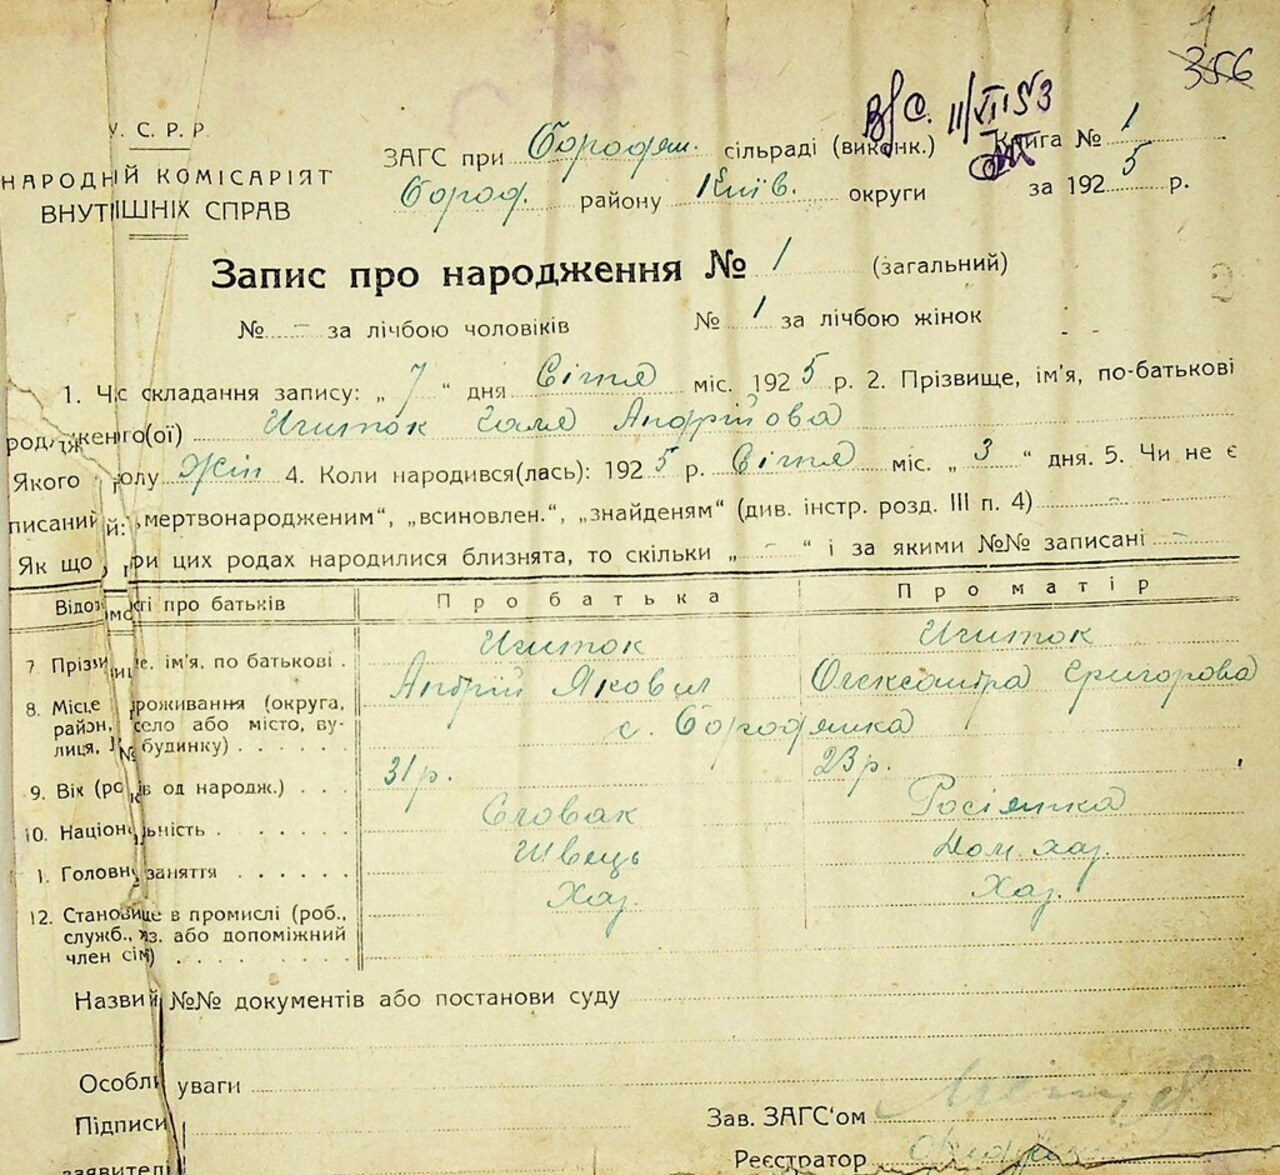 1
356
В/С. 11/VII 53
У. С. Р. Р.
НАРОДНІЙ КОМІСАРІЯТ
ВНУТІШНІХ СПРАВ
ЗАГС при Бородян. сільраді (виконк.) Книга № 1
Бород. району Київ. округи за 1925 р.
Запис про народження № 1 (загальний)
№ - за лічбою чоловіків № 1 за лічбою жінок
1. Час складання запису: „ 7 “ дня Січня міс. 1925 р. 2. Прізвище, ім'я, по-батькові
родженого(ої) Галя Андрійова
Якого полу Жін 4. Коли народився(лась): 1925 р. Січня міс. „ 3 “ дня. 5. Чи не є
писаний: „мертвонародженим“, „всиновлен.“, „знайденям“ (див. інстр. розд. III п. 4) -
Як що при цих родах народилися близнята, то скільки „ - “ і за якими №№ записані -
Відомості про батьків Про батька Про матір
7 Прізвище, ім'я, по батькові . Андрій Яковил Олександра Григорова
8. Місце проживання (округа,
район, село або місто, ву-
лиця, № будинку) . . . . . . с. Бородянка
9. Вік (років од народж.) . . . 31 р. 23 р.
10. Національність . . . . . . . Словак Росіянка
1. Головну заняття . . . . . . Швець Дом. хаз.
12. Становище в промислі (роб.,
служб., яз. або допоміжний
член сім) . . . . . . . . . Хаз. Хаз.
Назви й №№ документів або постанови суду
Особли уваги
Підписи
заявителі
Зав. ЗАГС'ом
Реєстратор